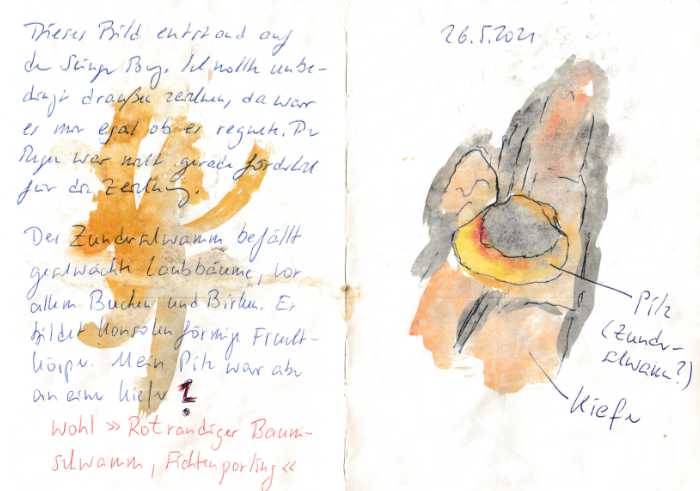 Dieses Bild entstand auf
der Burg. Ich wollte unbe-
dingt draußen zeichnen, da war
es mir egal ob es regnete. Der
Regen war nicht gerade förderlich
für die Zeichnung.
Der Zunderschwamm befällt
geschwächte Laubbäume, vor
allem Buchen und Birken. Er
bildet konsolenförmige Frucht-
körper. Mein Pilz war aber
an einer Kiefer ?
wohl » Rotrandiger Baum-
schwamm, Fichtenporling «
26.5.2021
Pilz
(Zunder-
schwamm?)
Kiefer